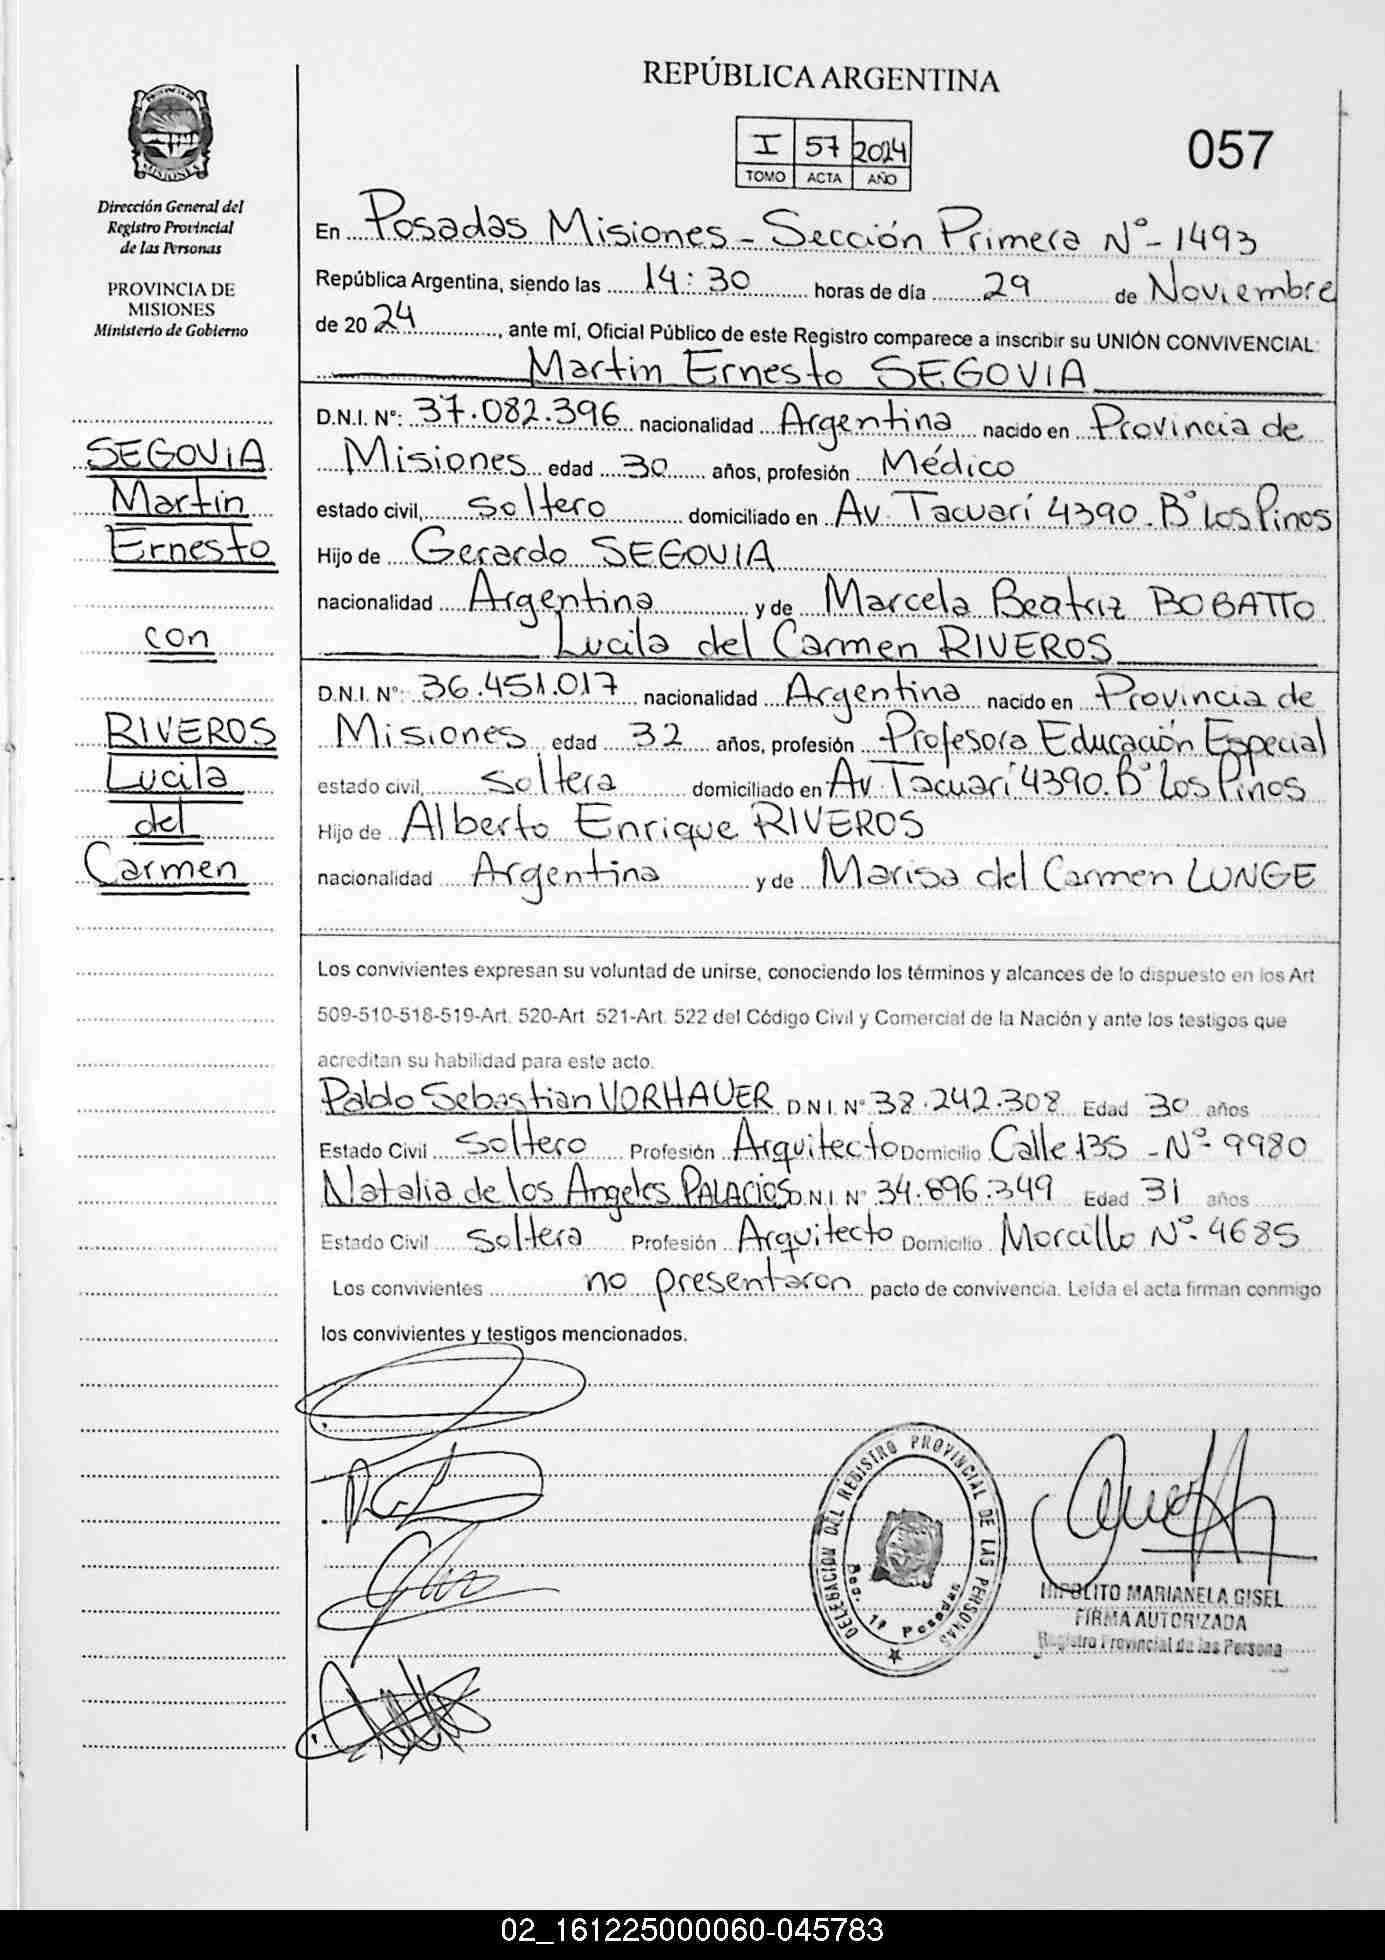 REPÚBLICA ARGENTINA
I 57 2024
TOMO ACTA AÑO
057
PROVINCIA DE MISIONES
Dirección General del
Registro Provincial
de las Personas
PROVINCIA DE
MISIONES
Ministerio de Gobierno
SEGOVIA
Martin
Ernesto
con
RIVEROS
Lucila
del
Carmen
En Posadas Misiones - Sección Primera Nº - 1493
República Argentina, siendo las 14:30 horas de día 29 de Noviembre
de 20 24, ante mí, Oficial Público de este Registro comparece a inscribir su UNIÓN CONVIVENCIAL:
Martin Ernesto SEGOVIA
D.N.I. Nº: 37.082.396 nacionalidad Argentina nacido en Provincia de
Misiones edad 30 años, profesión Médico
estado civil, soltero domiciliado en Av. Tacuarí 4390. Bº Los Pinos
Hijo de Gerardo SEGOVIA
nacionalidad Argentina y de Marcela Beatriz BOBATTO
Lucila del Carmen RIVEROS
D.N.I. Nº: 36.451.017 nacionalidad Argentina nacido en Provincia de
Misiones edad 32 años, profesión Profesora Educación Especial
estado civil, soltera domiciliado en Av. Tacuarí 4390. Bº Los Pinos
Hijo de Alberto Enrique RIVEROS
nacionalidad Argentina y de Marisa del Carmen LUNGE
Los convivientes expresan su voluntad de unirse, conociendo los términos y alcances de lo dispuesto en los Art
509-510-518-519-Art. 520-Art 521-Art. 522 del Código Civil y Comercial de la Nación y ante los testigos que
acreditan su habilidad para este acto.
Pablo Sebastian VORHAUER D.N.I. Nº 38.242.308 Edad 30 años
Estado Civil Soltero Profesión Arquitecto Domicilio Calle 135 - Nº - 9980
Natalia de los Angeles PALACIOS D.N.I. Nº 34.896.349 Edad 31 años
Estado Civil Soltera Profesión Arquitecto Domicilio Morcillo Nº - 4685
Los convivientes no presentaron pacto de convivencia. Leída el acta firman conmigo
los convivientes y testigos mencionados.
DELEGACION DEL REGISTRO PROVINCIAL DE LAS PERSONAS
Sec. 1ª Posadas
HIPOLITO MARIANELA GISEL
FIRMA AUTORIZADA
Registro Provincial de las Persona
02_161225000060-045783